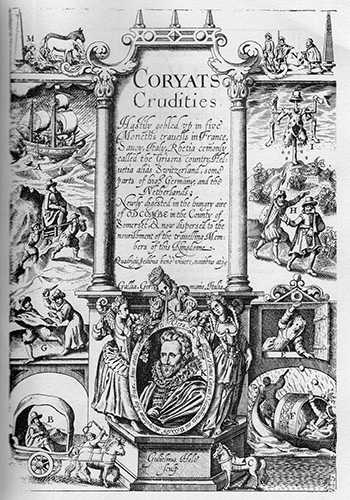 M
CORYATS
Crudities
Hastily gobled vp in five
Moneths trauells in France,
Sauoy, Italy, Rhetia comonly
called the Grisons country, Hel-
uetia aliàs Switzerland, some
parts of high Germany, and the
Netherlands;
Newly digested in the hungry aire
of ODCOMBE in the County of
Somerset, & now dispersed to the
nourishment of the trauelling Mem-
bers of this Kingdome
Gallia
Italia
H
G
B
F
Gulielmus Hole
sculp